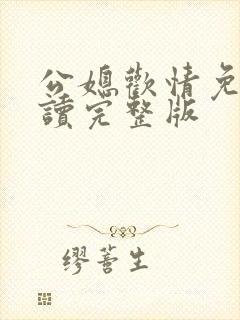 公媳歡情免
讀完整版
缪蓍生